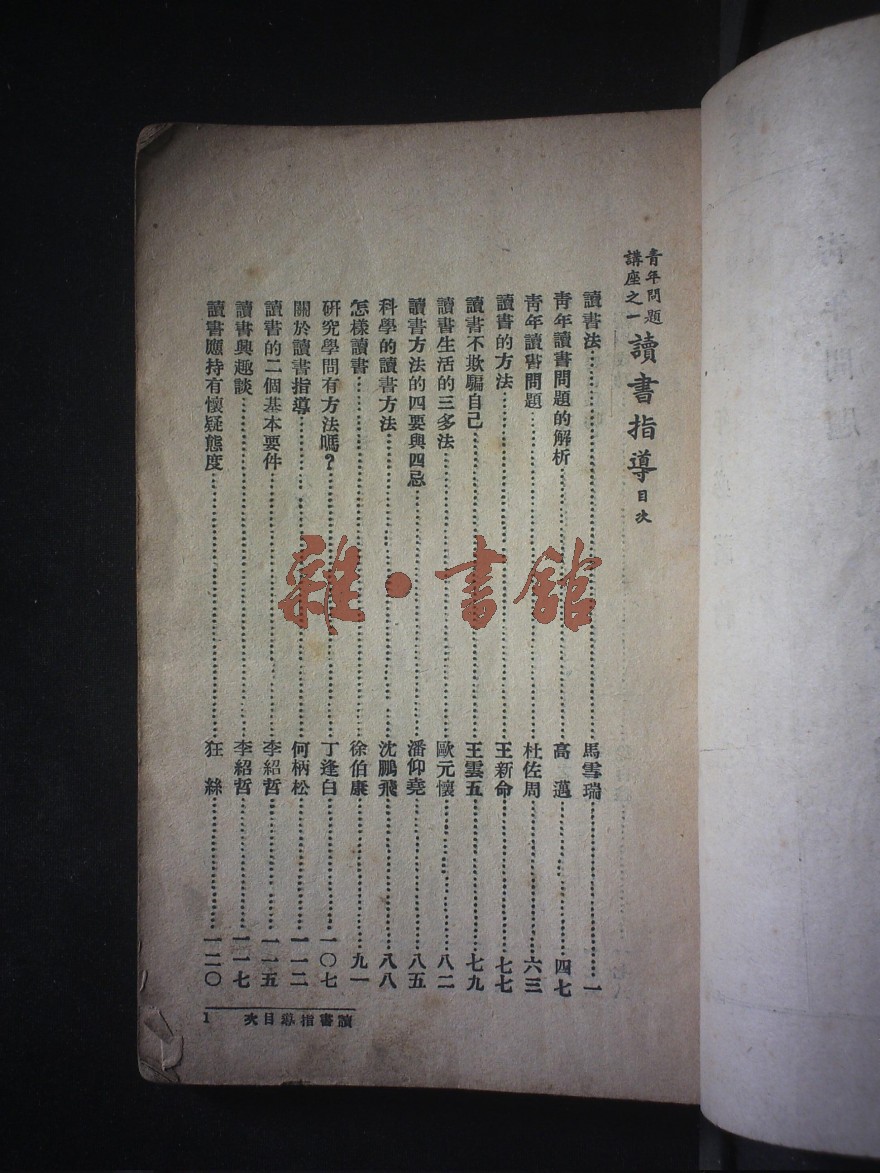 青年問題
講座之一
讀書指導目次
讀書法……馬雪瑞……一
青年讀書問題的解析……高邁……四七
青年讀書問題……杜佐周……六三
讀書的方法……王新命……七七
讀書不欺騙自己……王雲五……七九
讀書生活的三多法……歐元懷……八二
讀書方法的四要與四忌……潘仰堯……八五
科學的讀書方法……沈鵬飛……八八
怎樣讀書……徐伯康……九一
研究學問有方法嗎?……丁逢白……一〇七
關於讀書指導……何柄松……一一二
讀書的二個基本要件……李紹哲……一一五
讀書興趣談……李紹哲……一一七
讀書應持有懷疑態度……狂絲……一二〇
讀書指導目次
1
雜·書館